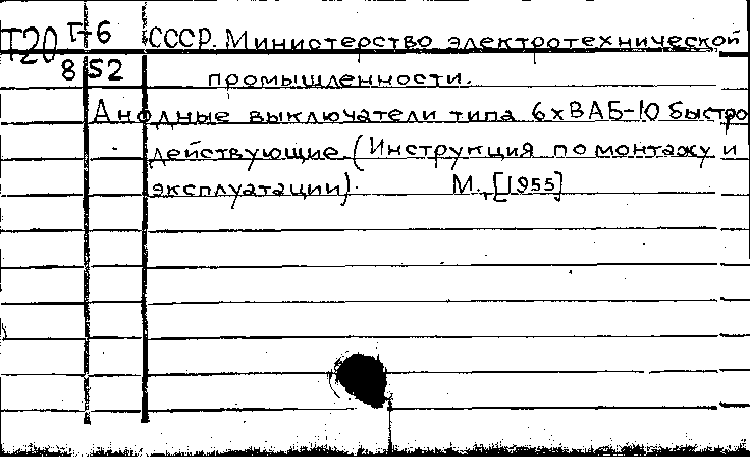 Т20 Г-6 СССР. Министерство электротехнической
8 52 промышленности.
Анодные выключатели типа 6хВАБ-10 быстро
действующие. (Инструкция по монтажу и
эксплуатации). М., [1955]